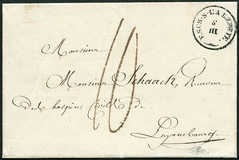 ESCH-S-L'ALZETTE.
5
III
10
Monsieur
Monsieur Schaack, Receveur
de hospices civils de
Luxembourg